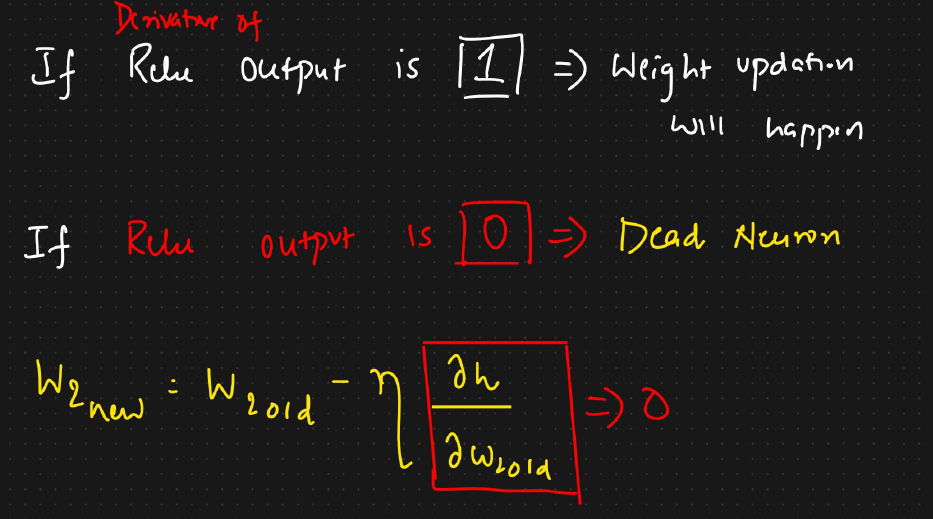 Derivative of
If Relu output is 1 => Weight updation
will happen
If Relu output is 0 => Dead Neuron
W₂new = W₂old - η ∂h/∂w₂old => 0